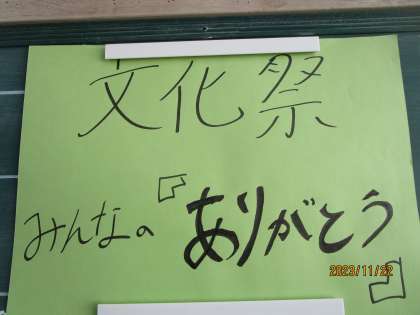 文化祭
みんなの『ありがとう』
2023/11/22